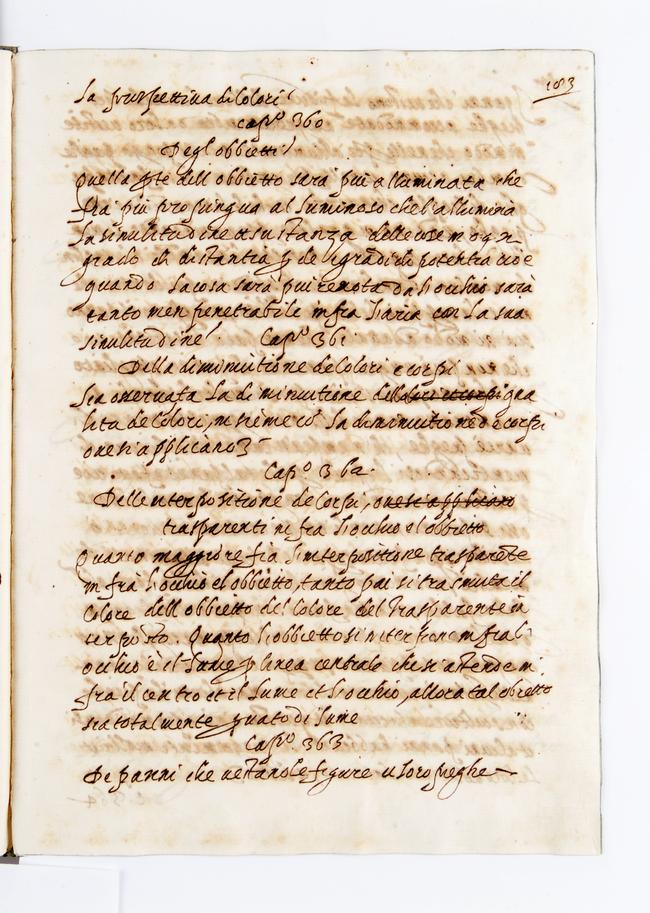 183
la prospettiva di Colori
Cap.º 360
Degl'obbietti
quella pte dell obbietto sarà piu alluminata che
fia piu propinqua al luminoso che l'allumina
la similitudine e sustanza delle cose in ogni
grado di distantia p de li gradi di potentia cioe
quando la cosa sarà piu remota da l'occhio sarà
tanto men penetrabile infra l'aria con la sua
similitudine. Cap.º 361
Della diminuitione de Colori e corpi
sia osservata la diminuitione della qua
lita de Colori, insieme co' la diminuitione de corpi
ove si applicano
Cap.º 362
Delle interpositione de Corpi, ove si applicano
trasparenti in fra l'occhio el obbietto
Quanto maggiore fia l'interpositione trasparēte
in fra l'occhio el obbietto, tanto piu si trasmuta il
Colore dell obbietto del Colore del trasparente in
terposto. Quanto l'obbietto si interpone in fra l
occhio e il lume p linea centrale che si astende in
fra il centro et il lume et l'occhio, allora tal obbietto
sia totalmente pvato di lume
Cap.º 363
De panni che vestano le figure e loro pieghe